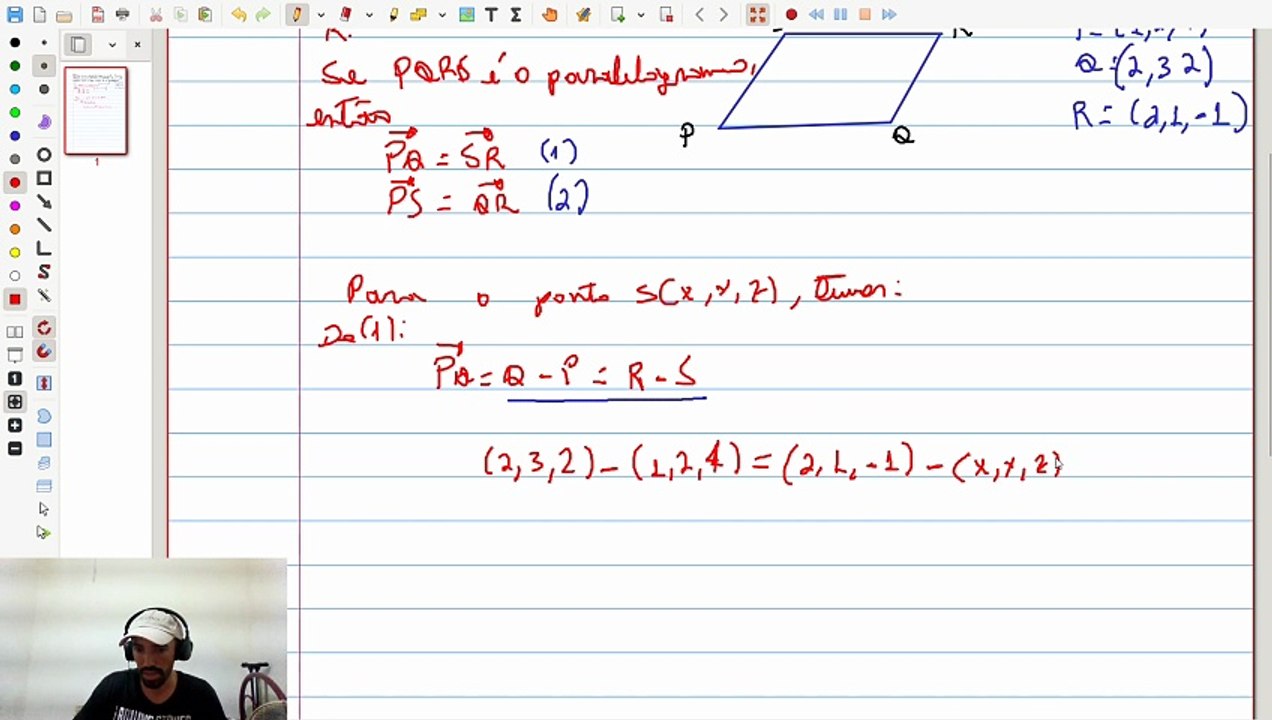 R.
Se PQRS é o paralelogramo,
então
PQ = SR (1)
PS = QR (2)
R
P
Q
Q = (2,3 2)
R = (2,1,-1)
Para o ponto S(x,y,z), temos:
De (1):
PQ = Q - P = R - S
(2,3,2) - (1,2,4) = (2,1,-1) - (x,y,z)
1